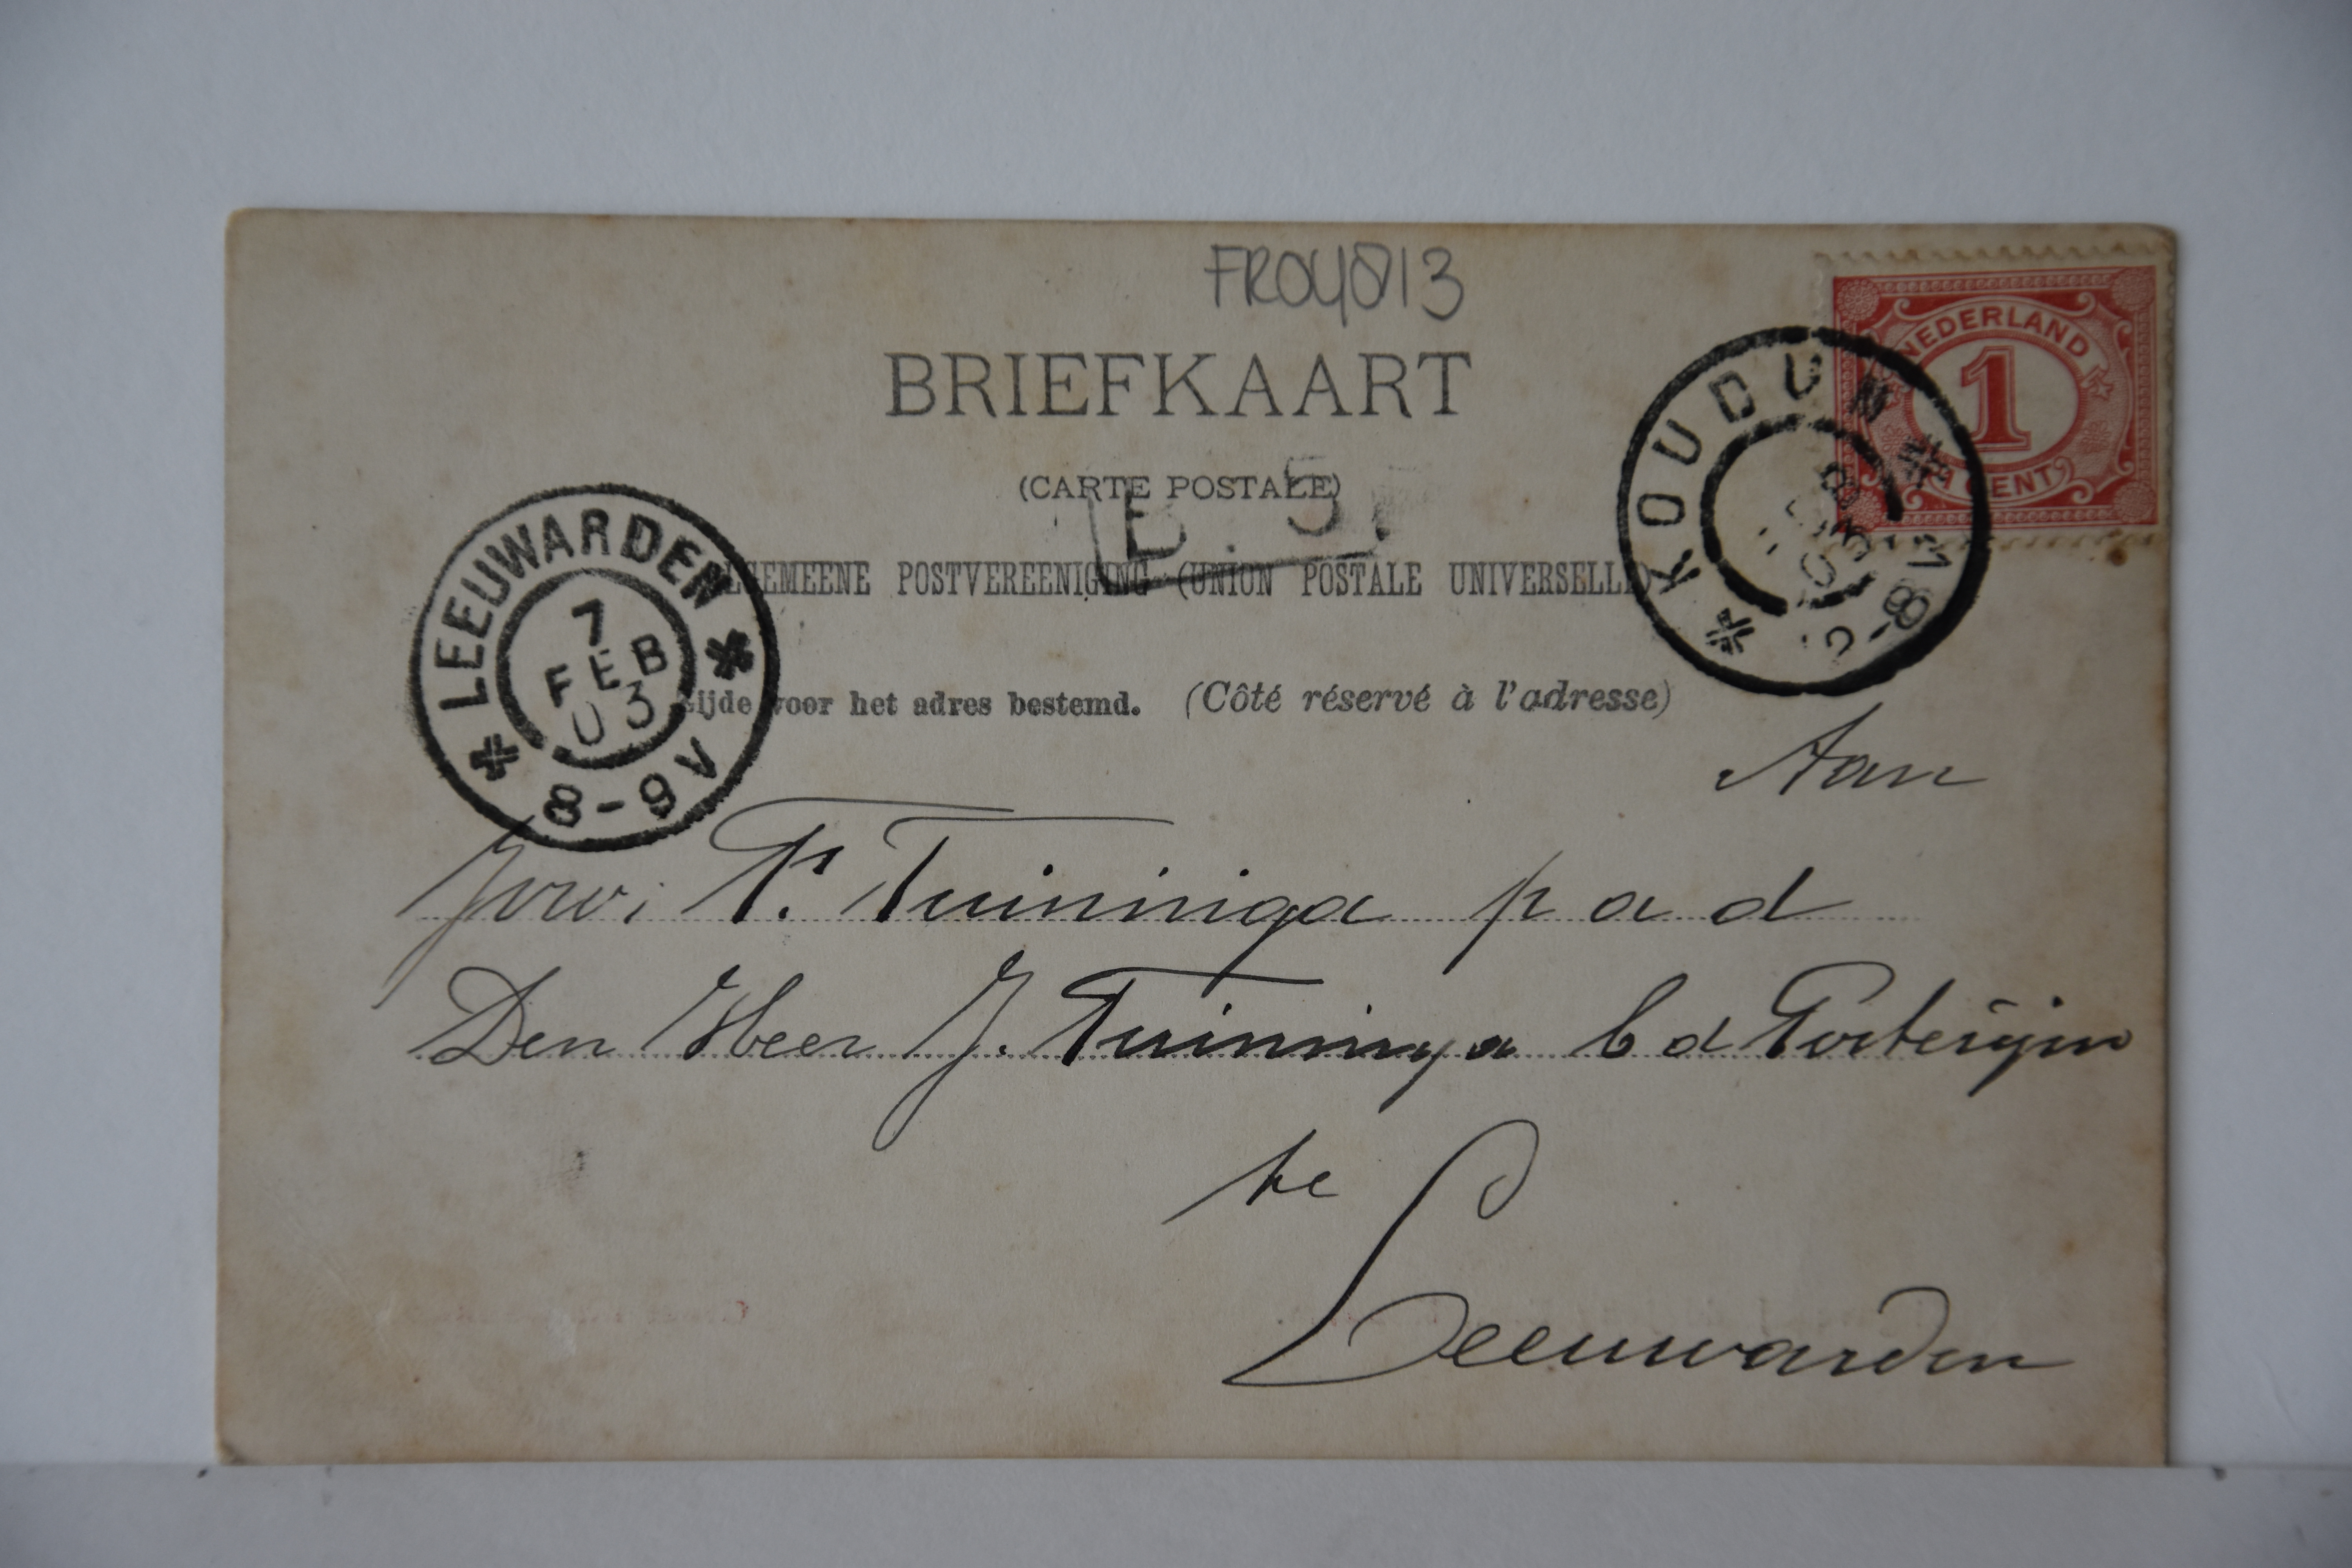 FR04813
BRIEFKAART
(CARTE POSTALE)
B. 5.
ALGEMEENE POSTVEREENIGING (UNION POSTALE UNIVERSELLE)
Zijde voor het adres bestemd. (Côté réservé à l'adresse)
LEEUWARDEN
7
FEB
03
8-9V
KOUDUM
NEDERLAND
1
CENT
Aan
T. Tuininga p a d
Den Heer J. Tuininga b d Posterijen
te
Leeuwarden